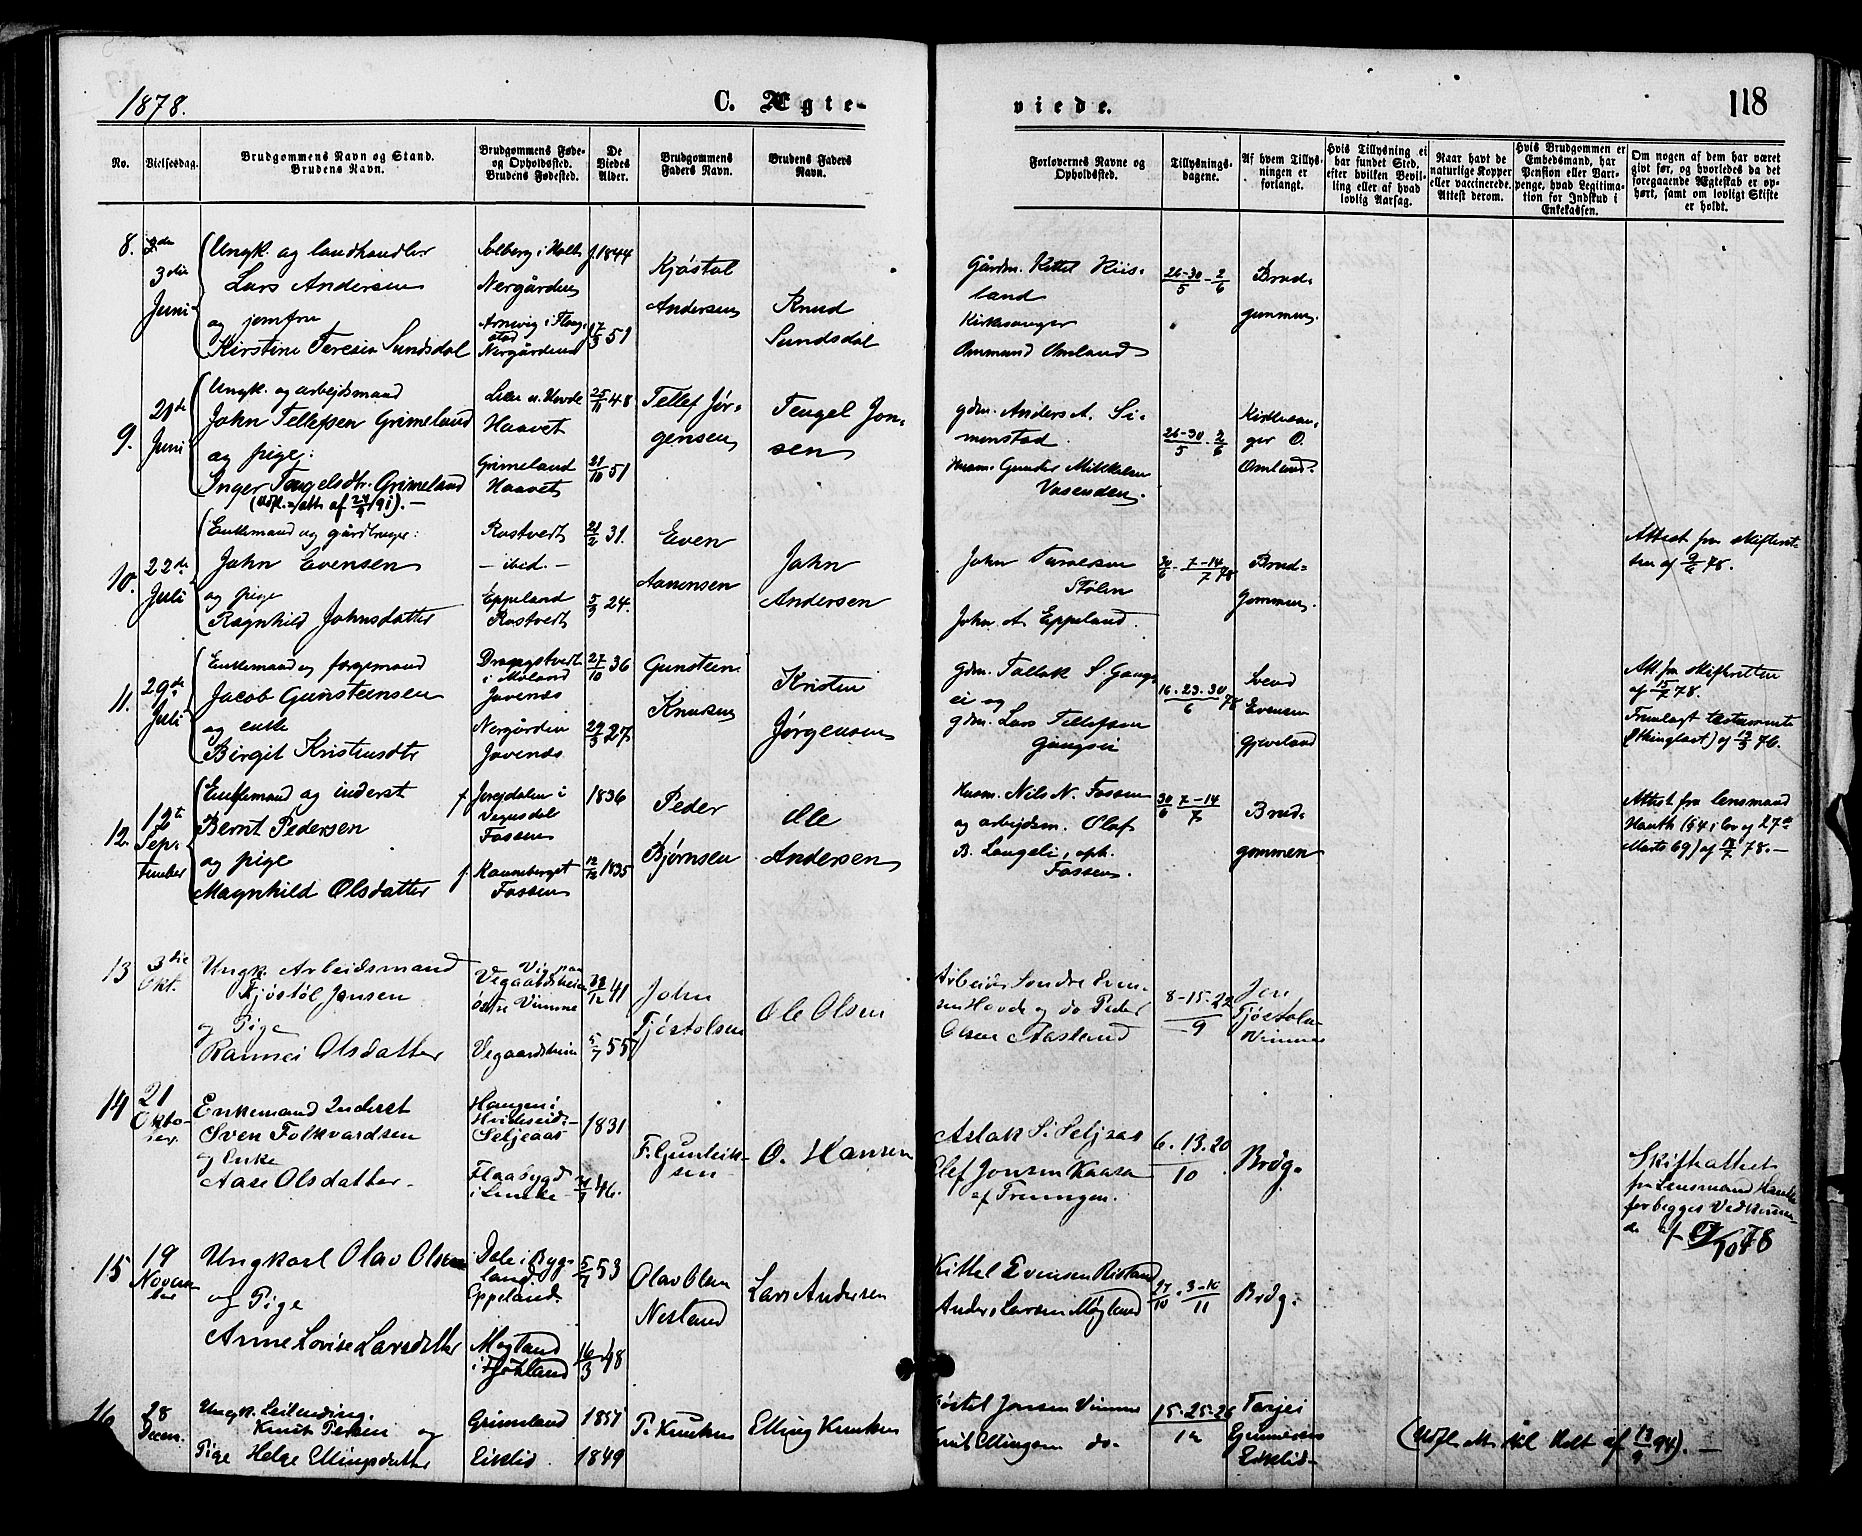 1878.
C. Ægte-
viede.
118
No.
Vielsesdag.
Brudgommens Navn og Stand.
Brudens Navn.
Brudgommens Føde-
og Opholdssted.
Brudens Fødested.
De
Viedes
Alder.
Brudgommens
Faders Navn.
Brudens Faders
Navn.
Forlovernes Navne og
Opholdssted.
Tillysnings-
dagene.
Af hvem Tillys-
ningen er
forlangt.
Hvis Tillysning ei
har fundet Sted,
efter hvilken Bevil-
ling eller af hvad
lovlig Aarsag.
Naar havt de
naturlige Kopper
eller vaccinerede.
Attest derom.
Hvis Brudgommen er
Embedsmand, har
Pension eller Vart-
penge, hvad Legitima-
tion for Indskud i
Enkekassen.
Om nogen af dem har været
givt før, og hvorledes da det
foregaaende Ægteskab er op-
hørt, samt om lovligt Skifte
er holdt.
8.
3die
Juni
Ungk. og landhandler
Lars Andersen
og jomfru
Kirstine Teresia Sundsdal
Solberg i Holt
Nergården
Arnevig i
Nergården
1844
17/3 51
Kjøstol
Andersen
Knud
Sundsdal
Gårdm. Kittel Riis-
land
Kirkesanger
Ommund Omland
26-30/5 - 2/6
Brud-
gommen.
9.
21de
Juni
Ungk. og arbejdsmand
John Tellefsen Grimeland
og pige:
Inger Tengelsdtr. Grimeland
(Udfl. att. af 24/9 91). —
Haavet
Grimeland
Haavet
25/11 48
21/10 51
Tellef Jør-
gensen
Tengel Jon-
sen
gdm. Anders A. Si-
monstad.
Husm. Gunder Mikkelsen
Vasenden.
26-30/5 - 2/6
Kirkesan-
ger O.
Omland.
10.
22de
Juli
Enkemand og gårdbruger:
John Evensen
og pige
Ragnhild Johnsdatter
Rostvedt
— ibid. —
Eppeland
Rostvedt
21/2 31.
5/3 24.
Even
Aanonsen
John
Andersen
John Tarersen
Stølen
John A. Eppeland.
30/6 - 7-14/7 78
Brud-
gommen.
Attest fra skifteret-
ten af 9/6 78.
11.
29de
Juli
Enkemand og færgemand
Jacob Gunsteinsen
og enke
Birgit Kristensdtr
i Moland
Javenes
Nergården
Javenes
27/10 36
29/3 27.
Gunstein
Knutsen
Kristen
Jørgensen
gdm. Tallak S. Gangs-
ei og
gdm. Lars Tellefsen
Gangsei
16. 23. 30/6 78
Svend
Evensen
Gjeveland
Att. fra skifteretten
af 15/7 78.
Fremlagt testamente
(thinglæst) af 13/3 76.
12.
12te
Sep-
tember
Enkemand og inderst
Bernt Pedersen
og pige
Magnhild Olsdatter
Vegusdal
Fossen
f. Ranneberget
Fossen
1836
12/12 1835
Peder
Bjørnsen
Ole
Andersen
Husm. Nils N. Fossen
og arbejdsm. Olaf
B. Langeli, oph.
Fossen.
30/6 7-14/7
Brud-
gommen
Attest fra lensmand
Hauth (§4 i lov af 27de
Marts 69) af 12/7 78. —
13
3die
Okt.
Ungk. Arbeidsmand
Tjøstøl Jonsen
og Pige
Rannei Olsdatter
Vegaardsheien
østre Vimme
Vegaardsheien
41
5/7 55
John
Tjøstolsen
Ole Olsen
Arbeider Sondre Sven-
sen Hovde og do Peder
Olsen Aasland
8-15-22/9
Jon
Tjøstolsen
Vimme
14
21
Okto-
ber.
Enkemand Inderst
Sven Folkvardsen
og Enke
Aase Olsdatter -
Haugen i
Hvideseid-
Seljeaas
Flaabygd
1831
46.
F. Gunleik-
sen -
O. Hansen
Aslak S. Seljeaas
Olef Jonsen Kaasa
af Treungen.
6. 13. 20/10
Brdg.
Skifteattest
fra Lensmand Hauth
for begges Vedkommen-
de af 9/10 78
15
19
Novem-
ber
Ungkarl Olav Olsen
og Pige
Anne Lovise Larsdatter
Dale i Byg-
land.
Eppeland.
Mogland
5/7 53
16/3 48
Olav Olsen
Nesland
Lars Andersen
Kittel Evensen Risland
Anders Larsen Møgland
27/10 . 3-10/11
Brdg.
16
28
Decem.
Ungk. Leilending.
Knut Persen og
Pige Helge Ellingsdatter
Grimeland
Eiklid.
1857
1849
P. Knutsen
Elling Knutsen
Jonsen Vimme
Knut Ellingsen do -
15-25-26/12
Tarjei
Gunnersen
Eiklid-
(Udfl. att. til Holt af 13/9 94). —